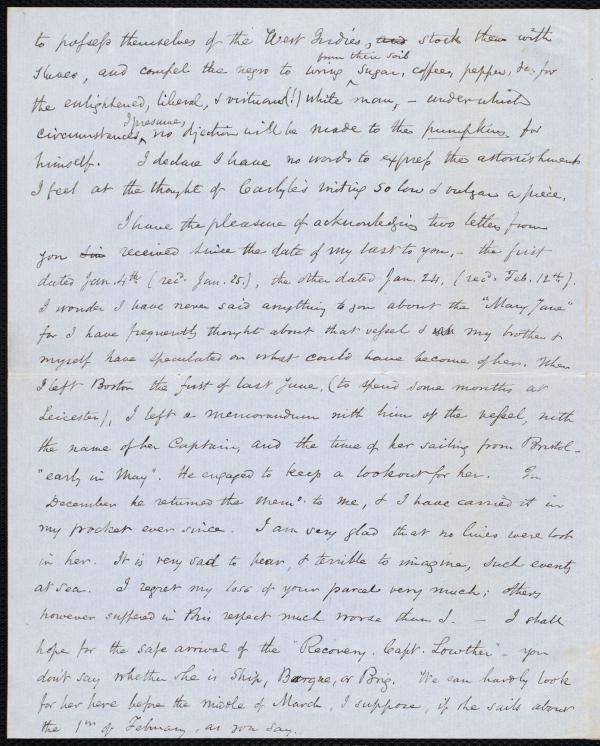 to possess themselves of the West Indies, and stock them with
slaves, and compel the negro to bring from their soil sugar, coffee, pepper, &c. for
the enlightened, liberal, & virtuous (!) white man, - under which
circumstances, I presume, no objection will be made to the pumpkin for
himself. I declare I have no words to express the astonishment
I feel at the thought of Carlyle's writing so low & vulgar a piece.
I have the pleasure of acknowledging two letters from
you received since the date of my last to you, - the first
dated Jan. 4th (recd. Jan. 25), the other dated Jan. 24, (recd. Feb. 12th).
I wonder I have never said anything to you about the "Mary Jane"
for I have frequently thought about that vessel & my brother &
myself have speculated on what could have become of her. When
I left Boston the first of last June, (to spend some months at
Leicester), I left a memorandum with him of the vessel, with
the name of her Captain, and the time of her sailing from Bristol -
"early in May". He engaged to keep a lookout for her. In
December he returned the memo. to me, & I have carried it in
my pocket ever since. I am very glad that no lives were lost
in her. It is very sad to hear, & terrible to imagine, such events
at sea. I regret my loss of your parcel very much; others
however suffered in this respect much worse than I. - I shall
hope for the safe arrival of the "Recovery, Capt. Lowther" - you
don't say whether she is Ship, Barque, or Brig. We can hardly look
for her here before the middle of March, I suppose, if she sails about
the 1st of February, as you say.